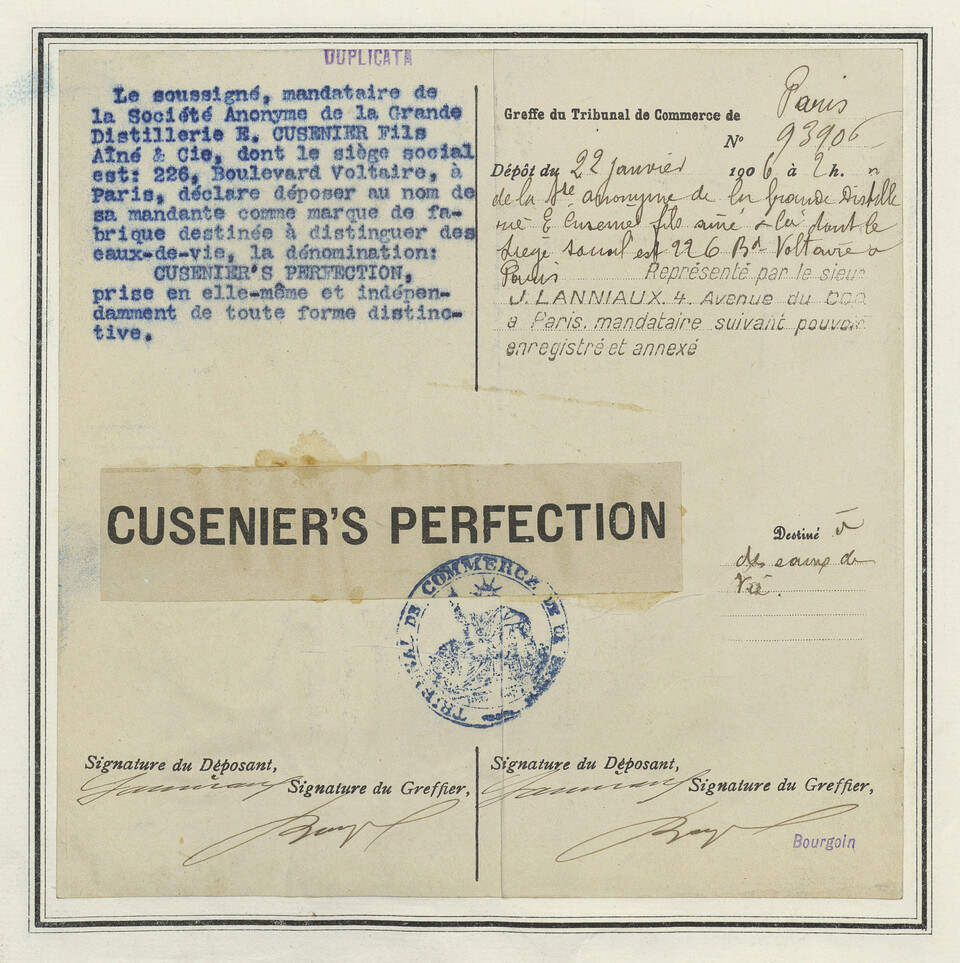 DUPLICATA
Le soussigné, mandataire de
la Société Anonyme de la Grande
Distillerie E. CUSENIER Fils
Aîné & Cie, dont le siège social
est: 226, Boulevard Voltaire, à
Paris, déclare déposer au nom de
sa mandante comme marque de fa-
brique destinée à distinguer des
eaux-de-vie, la dénomination:
CUSENIER'S PERFECTION,
prise en elle-même et indépen-
damment de toute forme distinc-
tive.
Greffe du Tribunal de Commerce de Paris
N° 93906
Dépôt du 22 janvier 1906 à 2 h.
de la Sté anonyme de la Grande Distille
rie E Cusenier fils aîné & Cie dont le
siège social est 226 Bd Voltaire à
Paris Représenté par le sieur
J. LANNIAUX. 4. Avenue du COQ
à Paris. mandataire suivant pouvoir
enregistré et annexé
CUSENIER'S PERFECTION
Destiné à
des eaux de
Vie.
TRIBUNAL DE COMMERCE DE LA SEINE
Signature du Déposant,
Signature du Greffier,
Signature du Déposant,
Signature du Greffier,
Bourgoin